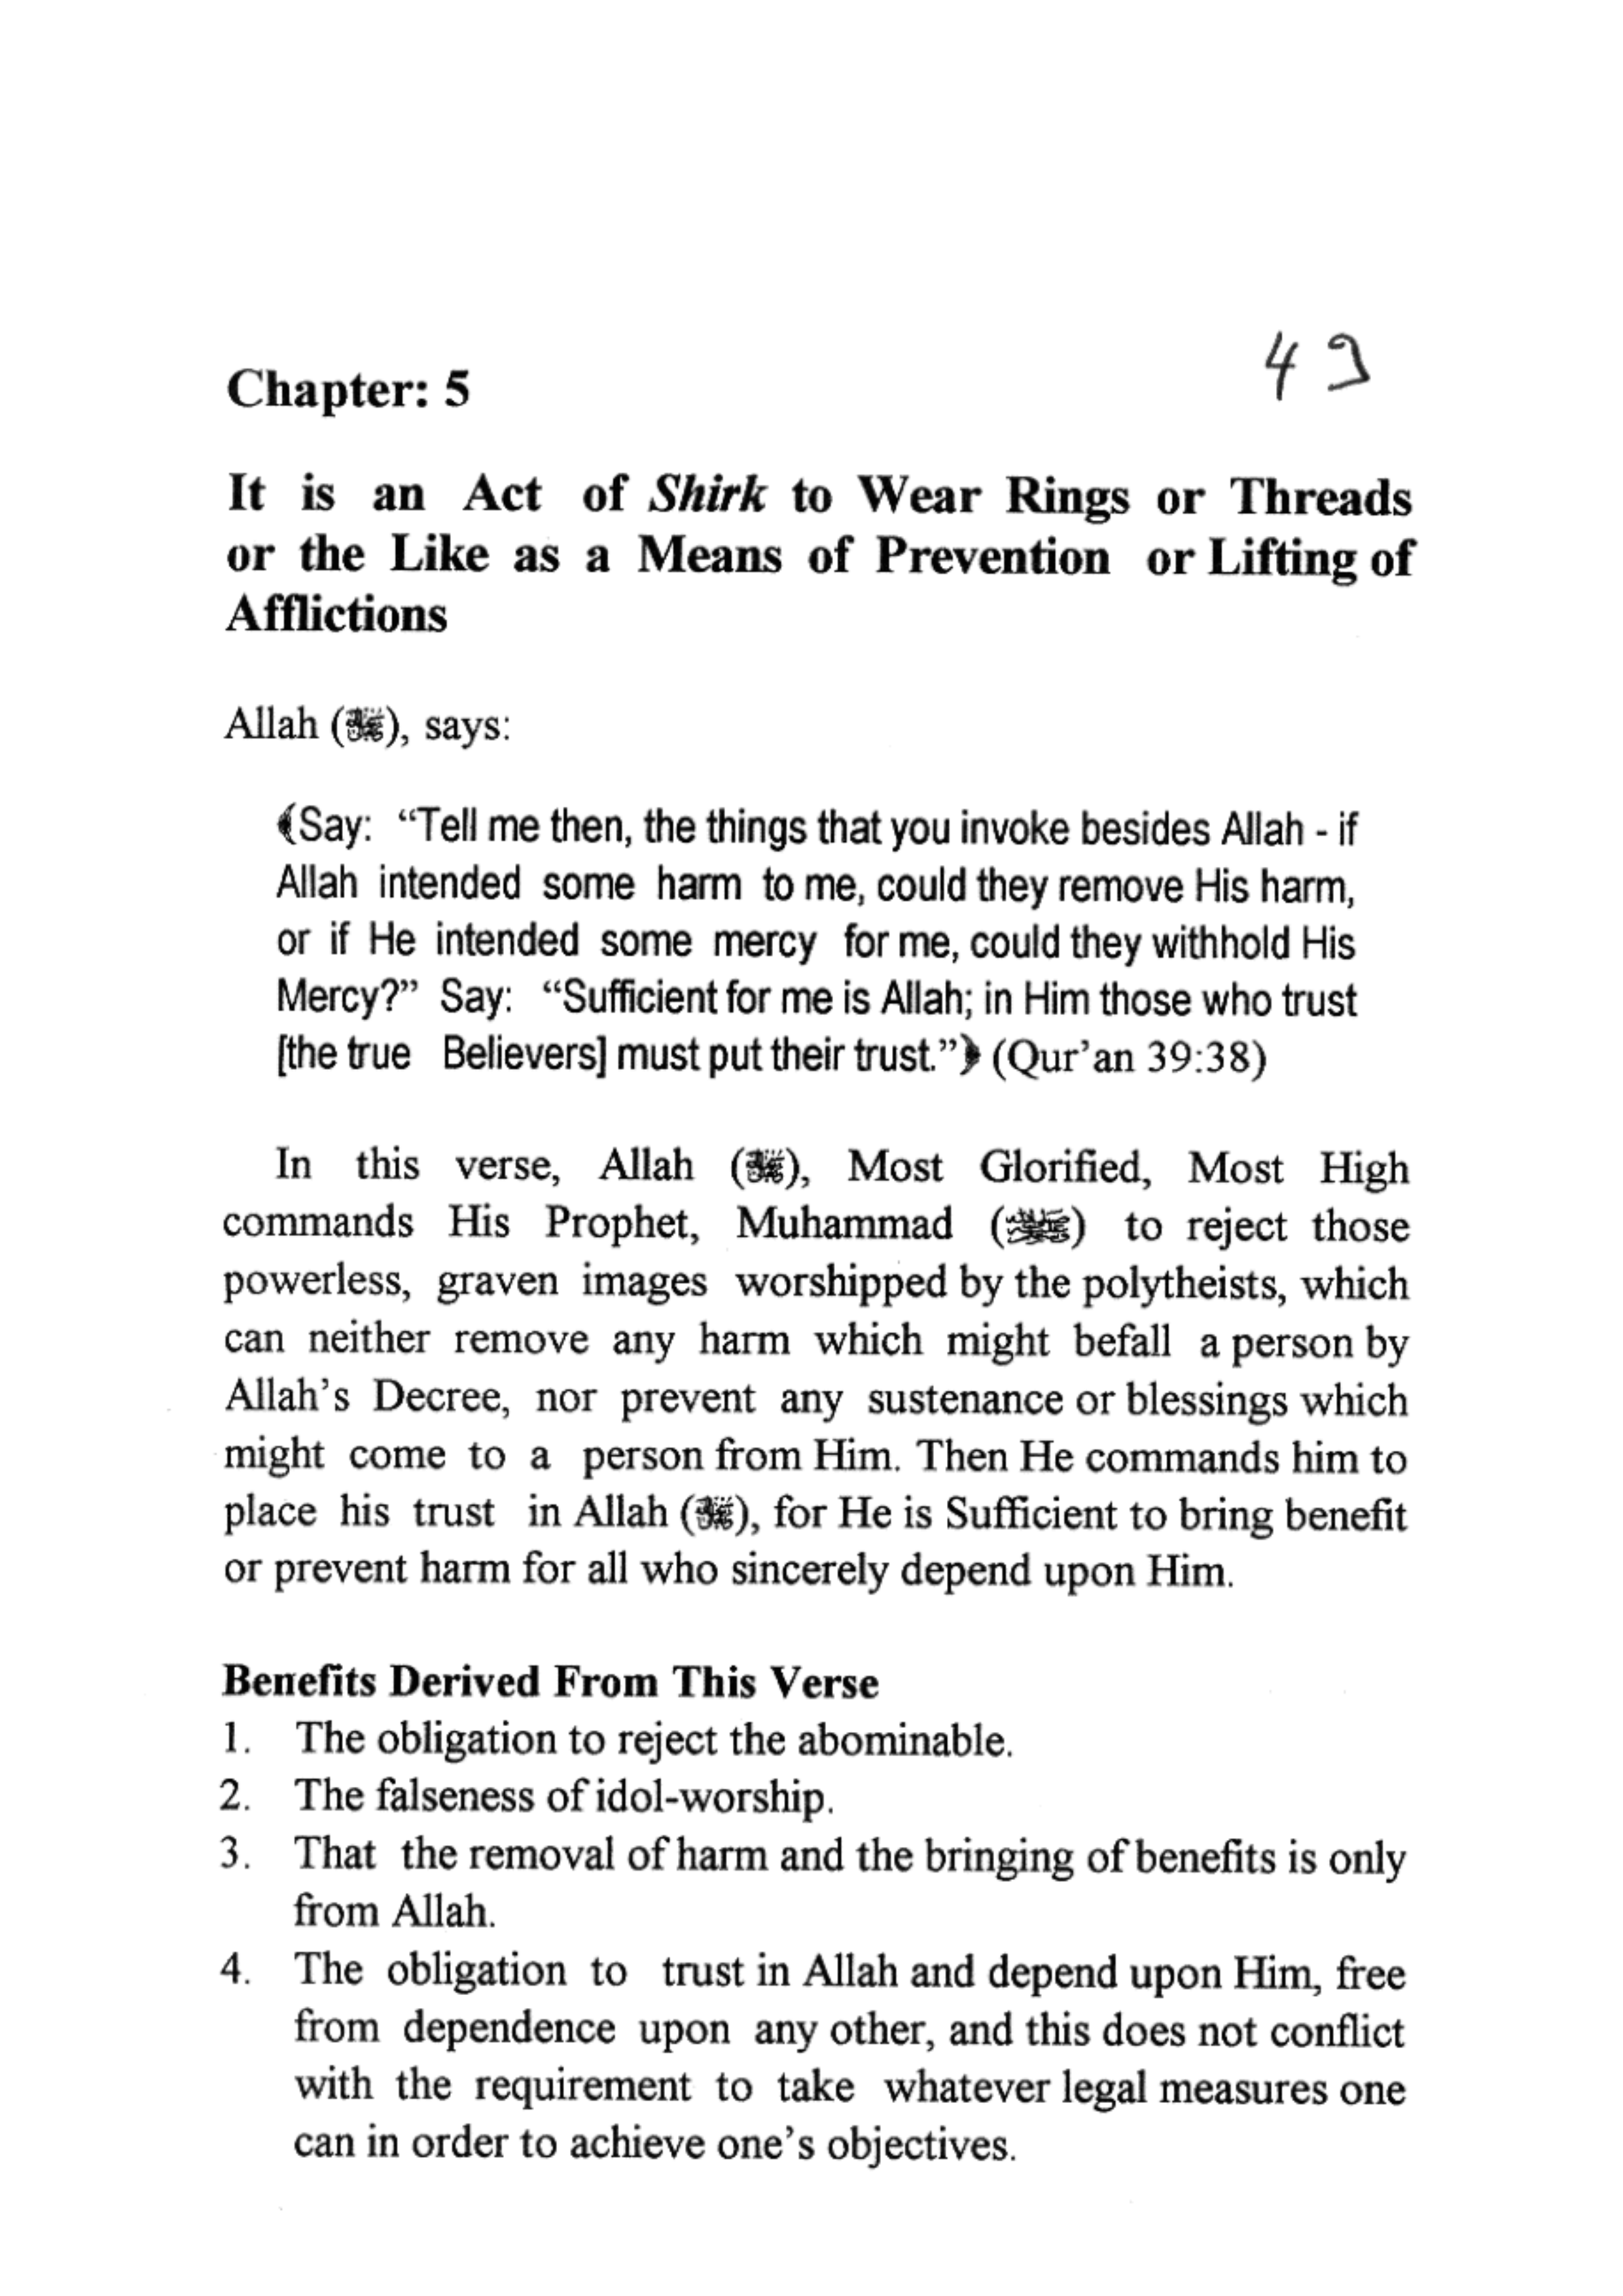 49
Chapter: 5
It is an Act of Shirk to Wear Rings or Threads
or the Like as a Means of Prevention or Lifting of
Afflictions
Allah (), says:
﴾Say: “Tell me then, the things that you invoke besides Allah - if
Allah intended some harm to me, could they remove His harm,
or if He intended some mercy for me, could they withhold His
Mercy?” Say: “Sufficient for me is Allah; in Him those who trust
[the true Believers] must put their trust.”﴿ (Qur’an 39:38)
In this verse, Allah (), Most Glorified, Most High
commands His Prophet, Muhammad () to reject those
powerless, graven images worshipped by the polytheists, which
can neither remove any harm which might befall a person by
Allah’s Decree, nor prevent any sustenance or blessings which
might come to a person from Him. Then He commands him to
place his trust in Allah (), for He is Sufficient to bring benefit
or prevent harm for all who sincerely depend upon Him.
Benefits Derived From This Verse
1. The obligation to reject the abominable.
2. The falseness of idol-worship.
3. That the removal of harm and the bringing of benefits is only
from Allah.
4. The obligation to trust in Allah and depend upon Him, free
from dependence upon any other, and this does not conflict
with the requirement to take whatever legal measures one
can in order to achieve one’s objectives.